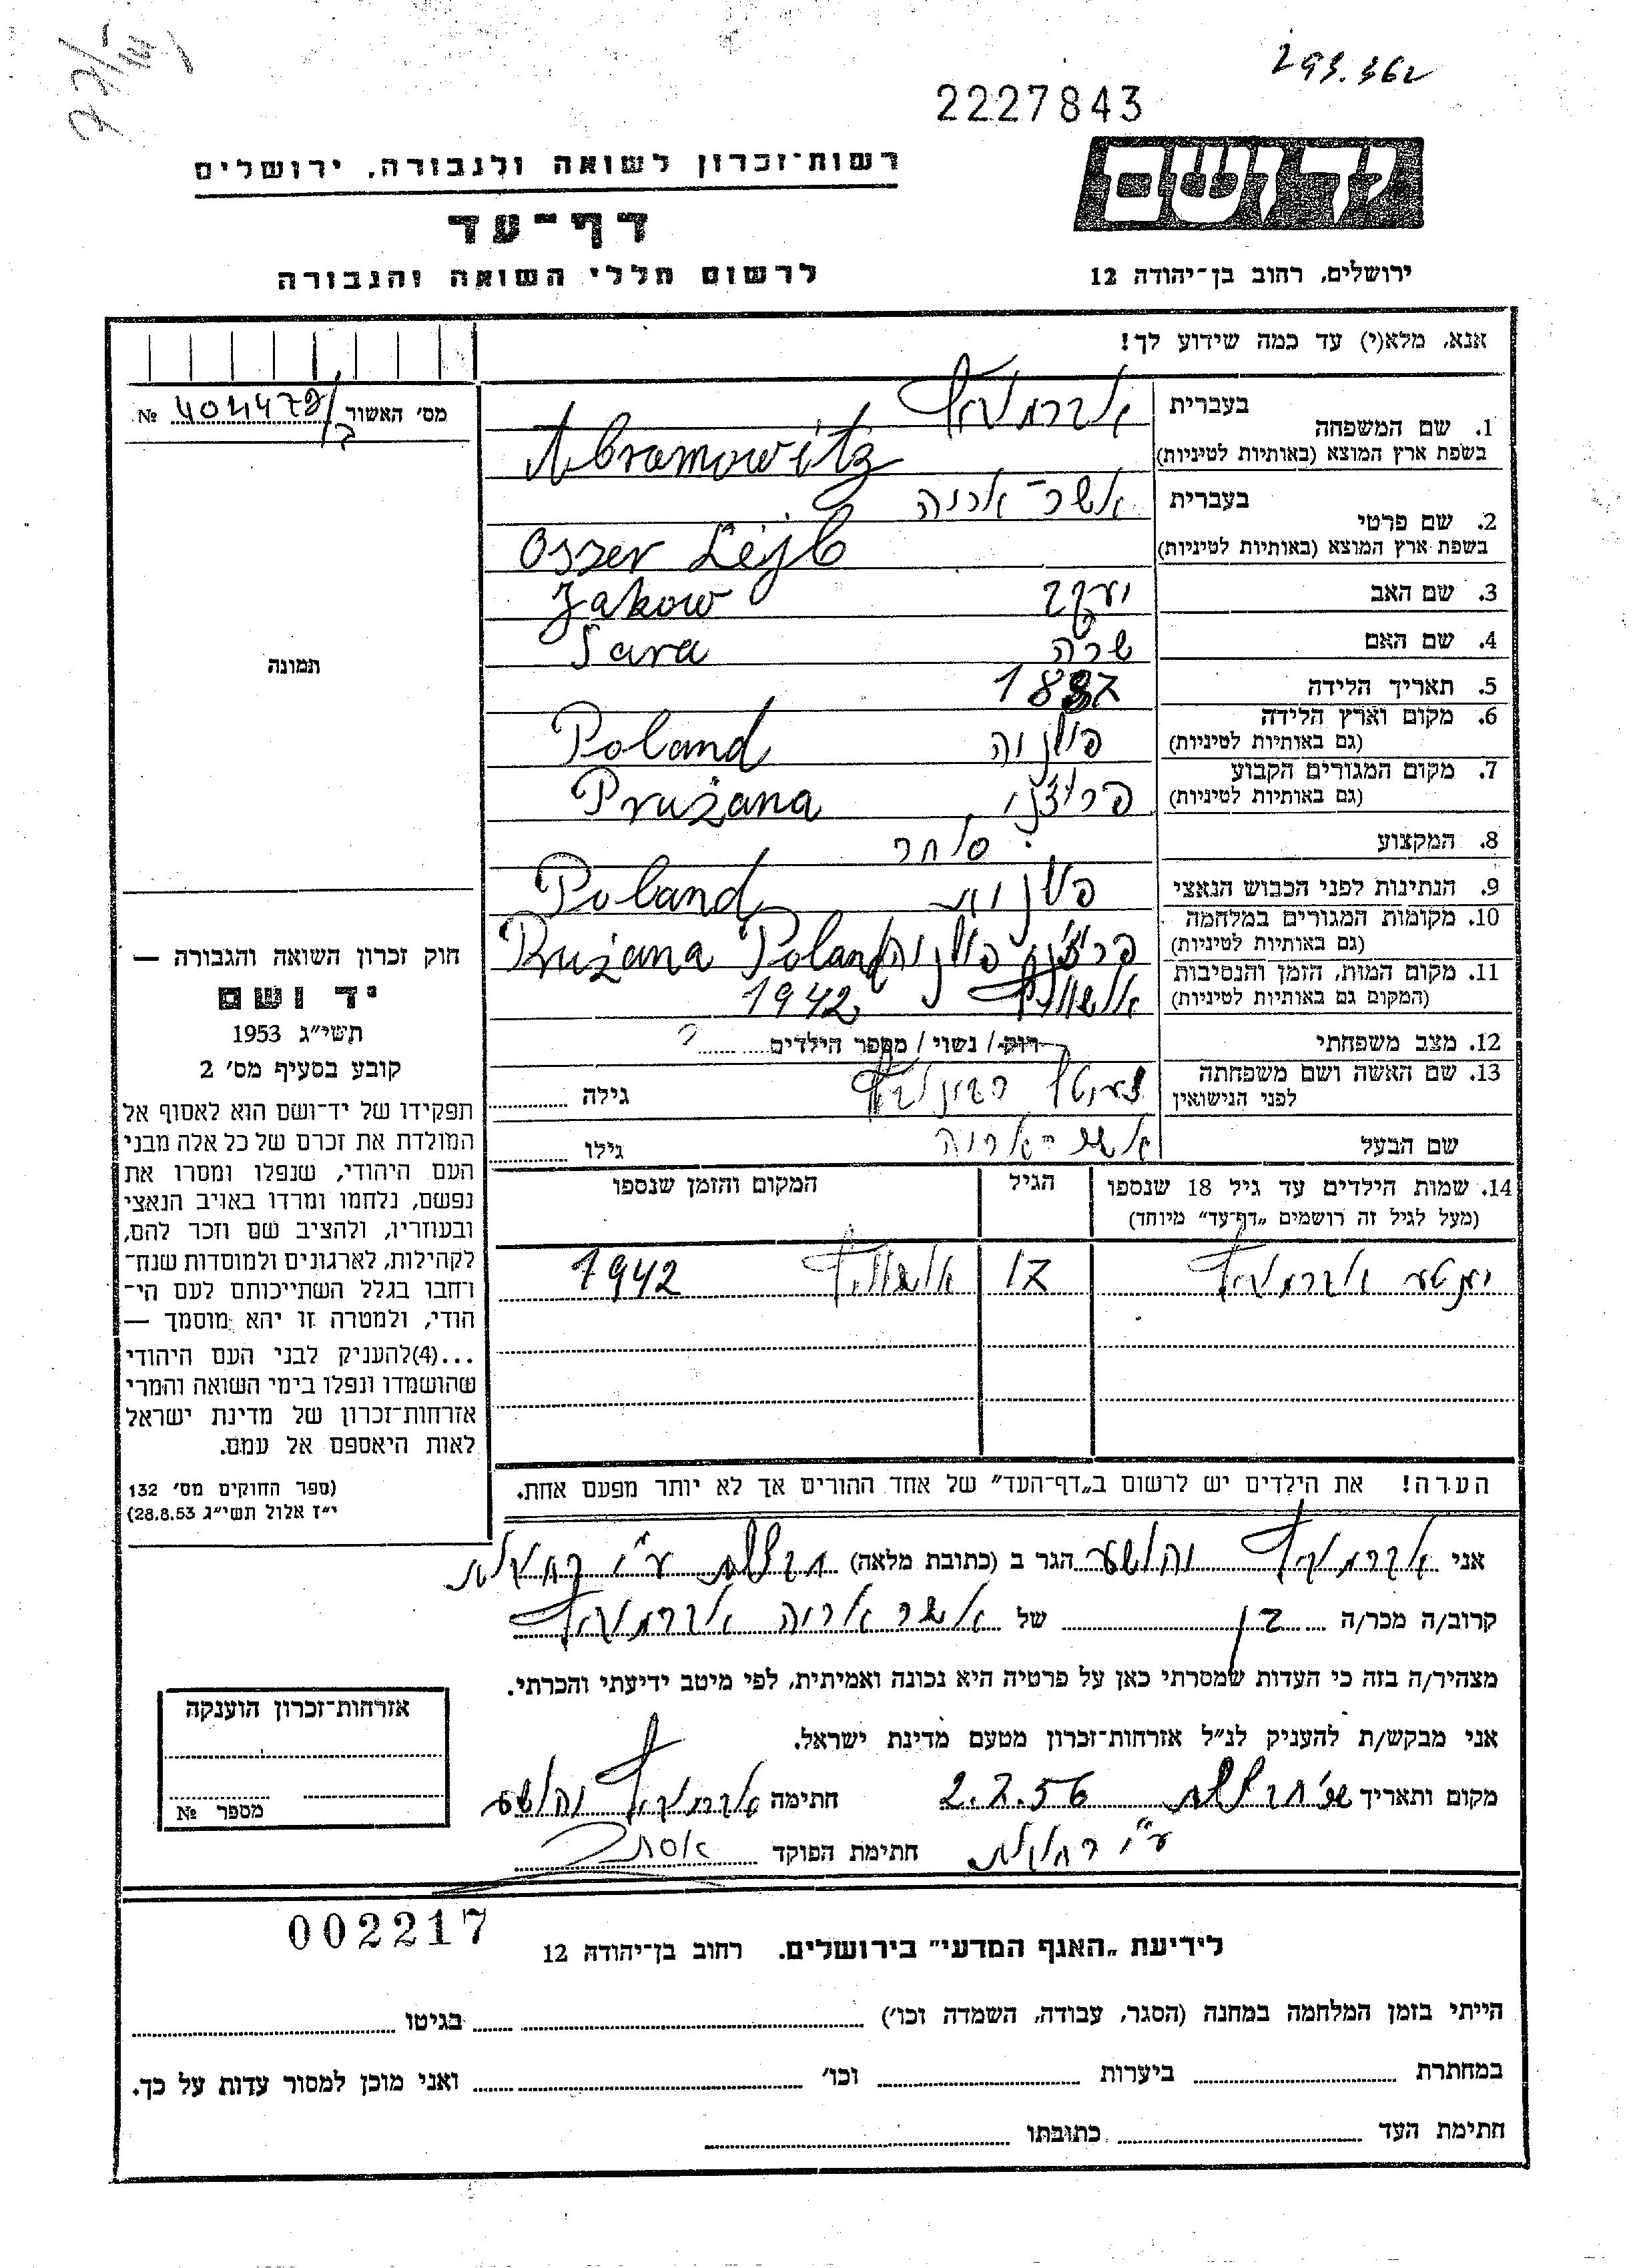 293.362
2227843
יד ושם
רשות-זכרון לשואה ולגבורה, ירושלים
דף-עד
ירושלים, רחוב בן-יהודה 12
לרשום חללי השואה והגבורה
אנא, מלא(י) עד כמה שידוע לך!
מס' האשור № 404478
1. שם המשפחה
בעברית אברמוביץ
בשפת ארץ המוצא (באותיות לטיניות) Abramowitz
2. שם פרטי
בעברית אשר-אריה
בשפת ארץ המוצא (באותיות לטיניות) Oszer Lejb
3. שם האב יעקב Jakow
4. שם האם שרה Sara
5. תאריך הלידה 1887
6. מקום וארץ הלידה
(גם באותיות לטיניות) פולניה Poland
7. מקום המגורים הקבוע
(גם באותיות לטיניות) פרוז'ני Prużana
8. המקצוע סוחר
9. הנתינות לפני הכבוש הנאצי פולנית Poland
10. מקומות המגורים במלחמה
(גם באותיות לטיניות) פרוז'ני פולניה Prużana Poland
11. מקום המות, הזמן והנסיבות
(המקום גם באותיות לטיניות) אושוויץ 1942
12. מצב משפחתי רווק / נשוי / מספר הילדים
13. שם האשה ושם משפחתה
לפני הנישואין
גילה
שם הבעל אשר-אריה גילו
14. שמות הילדים עד גיל 18 שנספו
(מעל לגיל זה רושמים "דף-עד" מיוחד)
הגיל
המקום והזמן שנספו
אברמוביץ 17 אושוויץ 1942
הערה! את הילדים יש לרשום ב"דף-העד" של אחד ההורים אך לא יותר מפעם אחת.
תמונה
חוק זכרון השואה והגבורה —
יד ושם
תשי"ג 1953
קובע בסעיף מס' 2
תפקידו של יד-ושם הוא לאסוף אל
המולדת את זכרם של כל אלה מבני
העם היהודי, שנפלו ומסרו את
נפשם, נלחמו ומרדו באויב הנאצי
ובעוזריו, ולהציב שם וזכר להם,
לקהילות, לארגונים ולמוסדות שנח-
רבו בגלל השתייכותם לעם הי-
הודי, ולמטרה זו יהא מוסמך —
...(4)להעניק לבני העם היהודי
שהושמדו ונפלו בימי השואה והמרי
אזרחות-זכרון של מדינת ישראל
לאות היאספם אל עמם.
(ספר החוקים מס' 132
י"ז אלול תשי"ג 28.8.53)
אני אברמוביץ יהושע הגר ב (כתובת מלאה) חבצלת ע"י רחובות
קרוב/ה מכר/ה בן של אשר אריה אברמוביץ
מצהיר/ה בזה כי העדות שמסרתי כאן על פרטיה היא נכונה ואמיתית, לפי מיטב ידיעתי והכרתי.
אני מבקש/ת להעניק לנ"ל אזרחות-זכרון מטעם מדינת ישראל.
מקום ותאריך חבצלת 2.7.56 חתימה אברמוביץ יהושע
ע"י רחובות חתימת הפוקד
אזרחות-זכרון הוענקה
מספר №
002217
לידיעת "האגף המדעי" בירושלים. רחוב בן-יהודה 12
הייתי בזמן המלחמה במחנה (הסגר, עבודה, השמדה וכו') בגיטו
במחתרת ביערות וכו' ואני מוכן למסור עדות על כך.
חתימת העד כתובתו